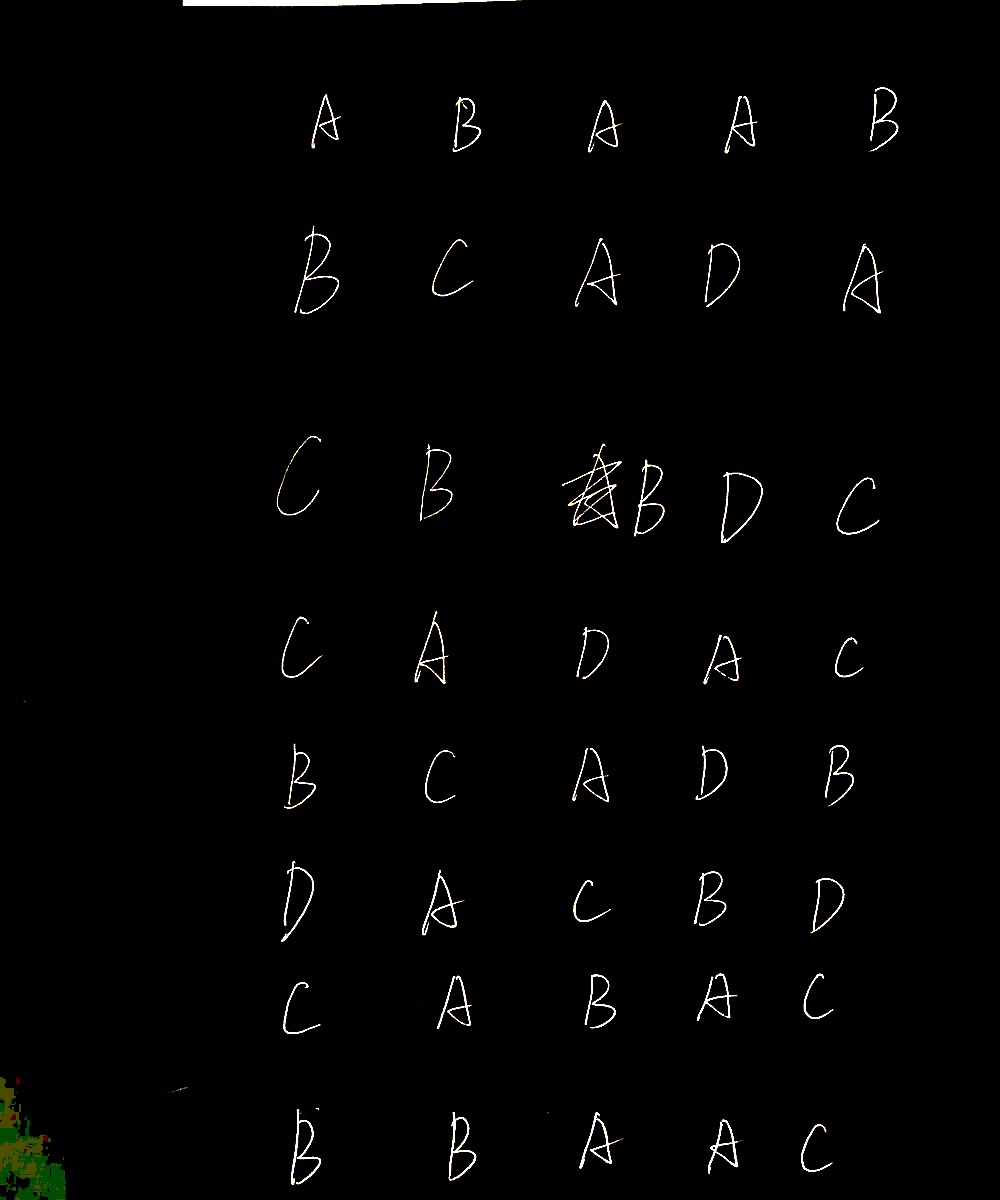 A B A A B
B C A D A
C B B D C
C A D A C
B C A D B
D A C B D
C A B A C
B B A A C